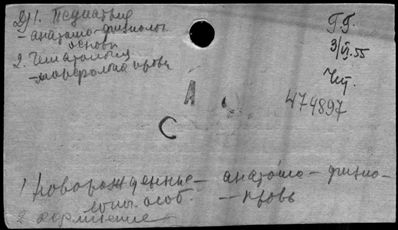 1. Педиатрия
- анатомо-физиолог.
основы
2. Гематология
- морфология крови
Г.Г.
3/VI.55
Чит.
474897
А
С
1 Новорожденные - анатомо-физио-
логич. особ. - кровь
2